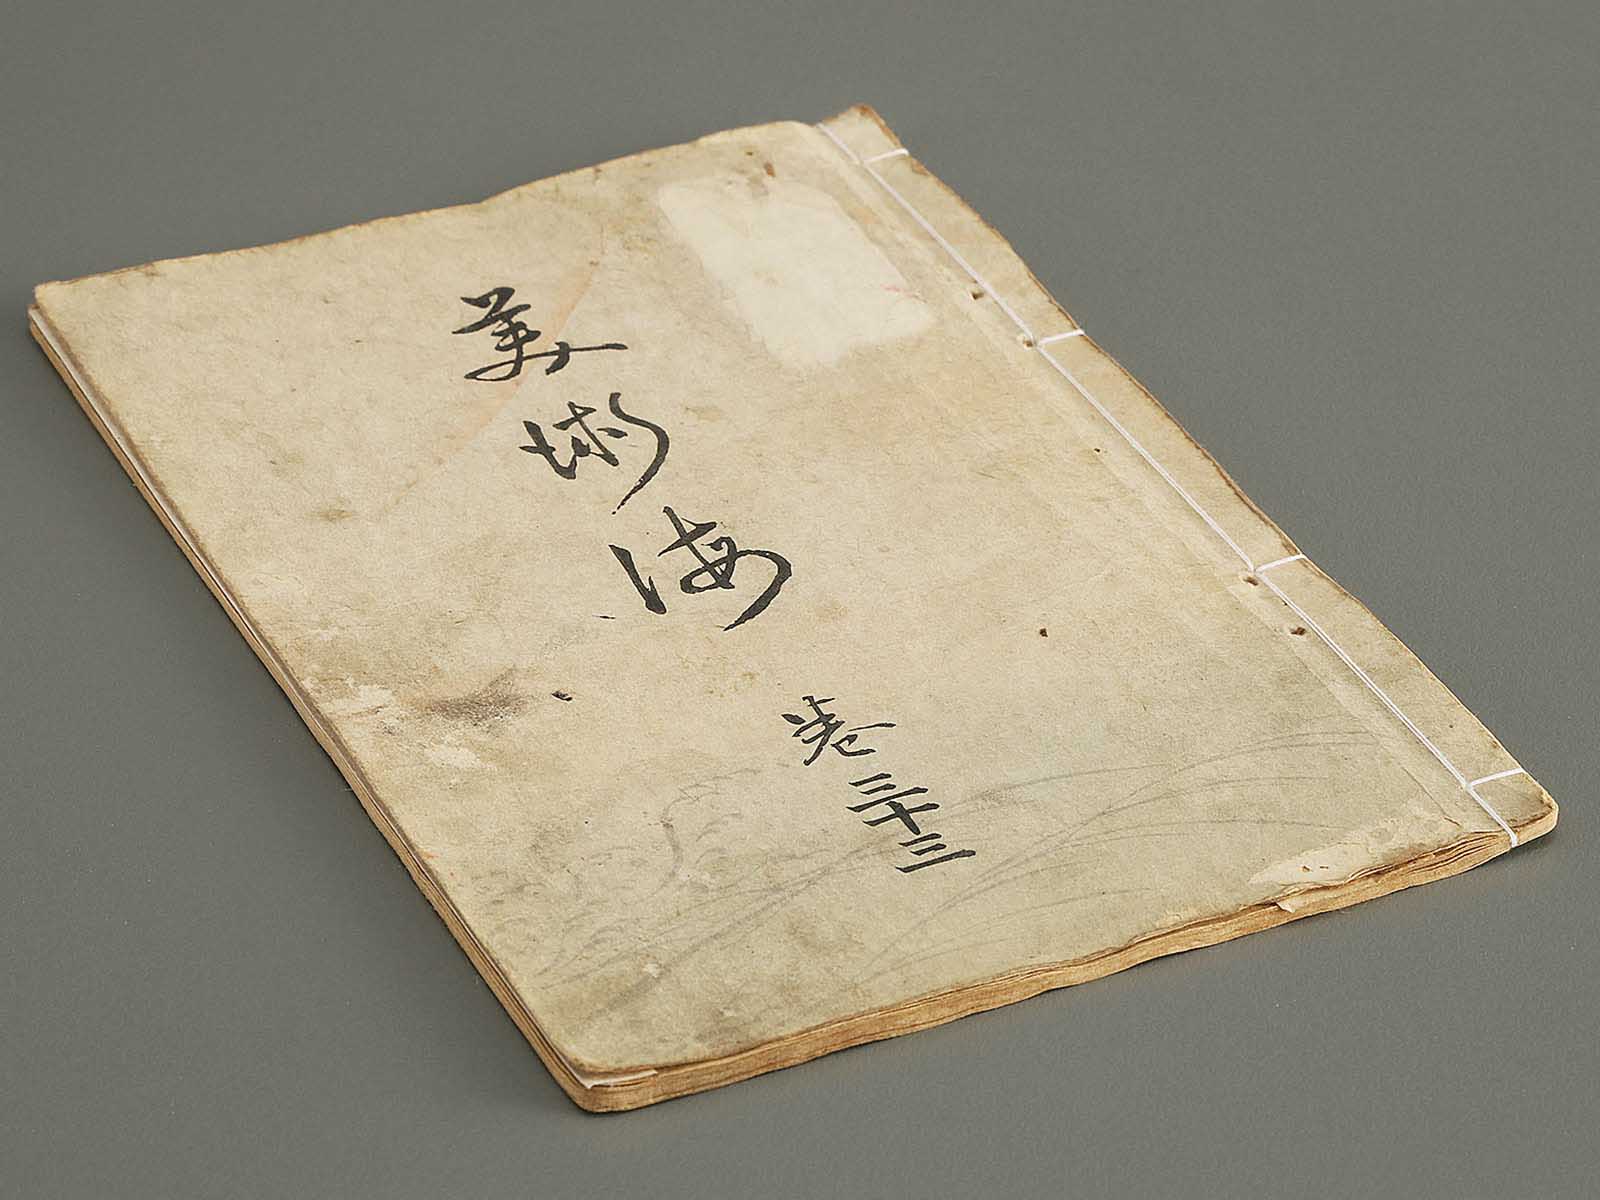 美術海
巻三十三